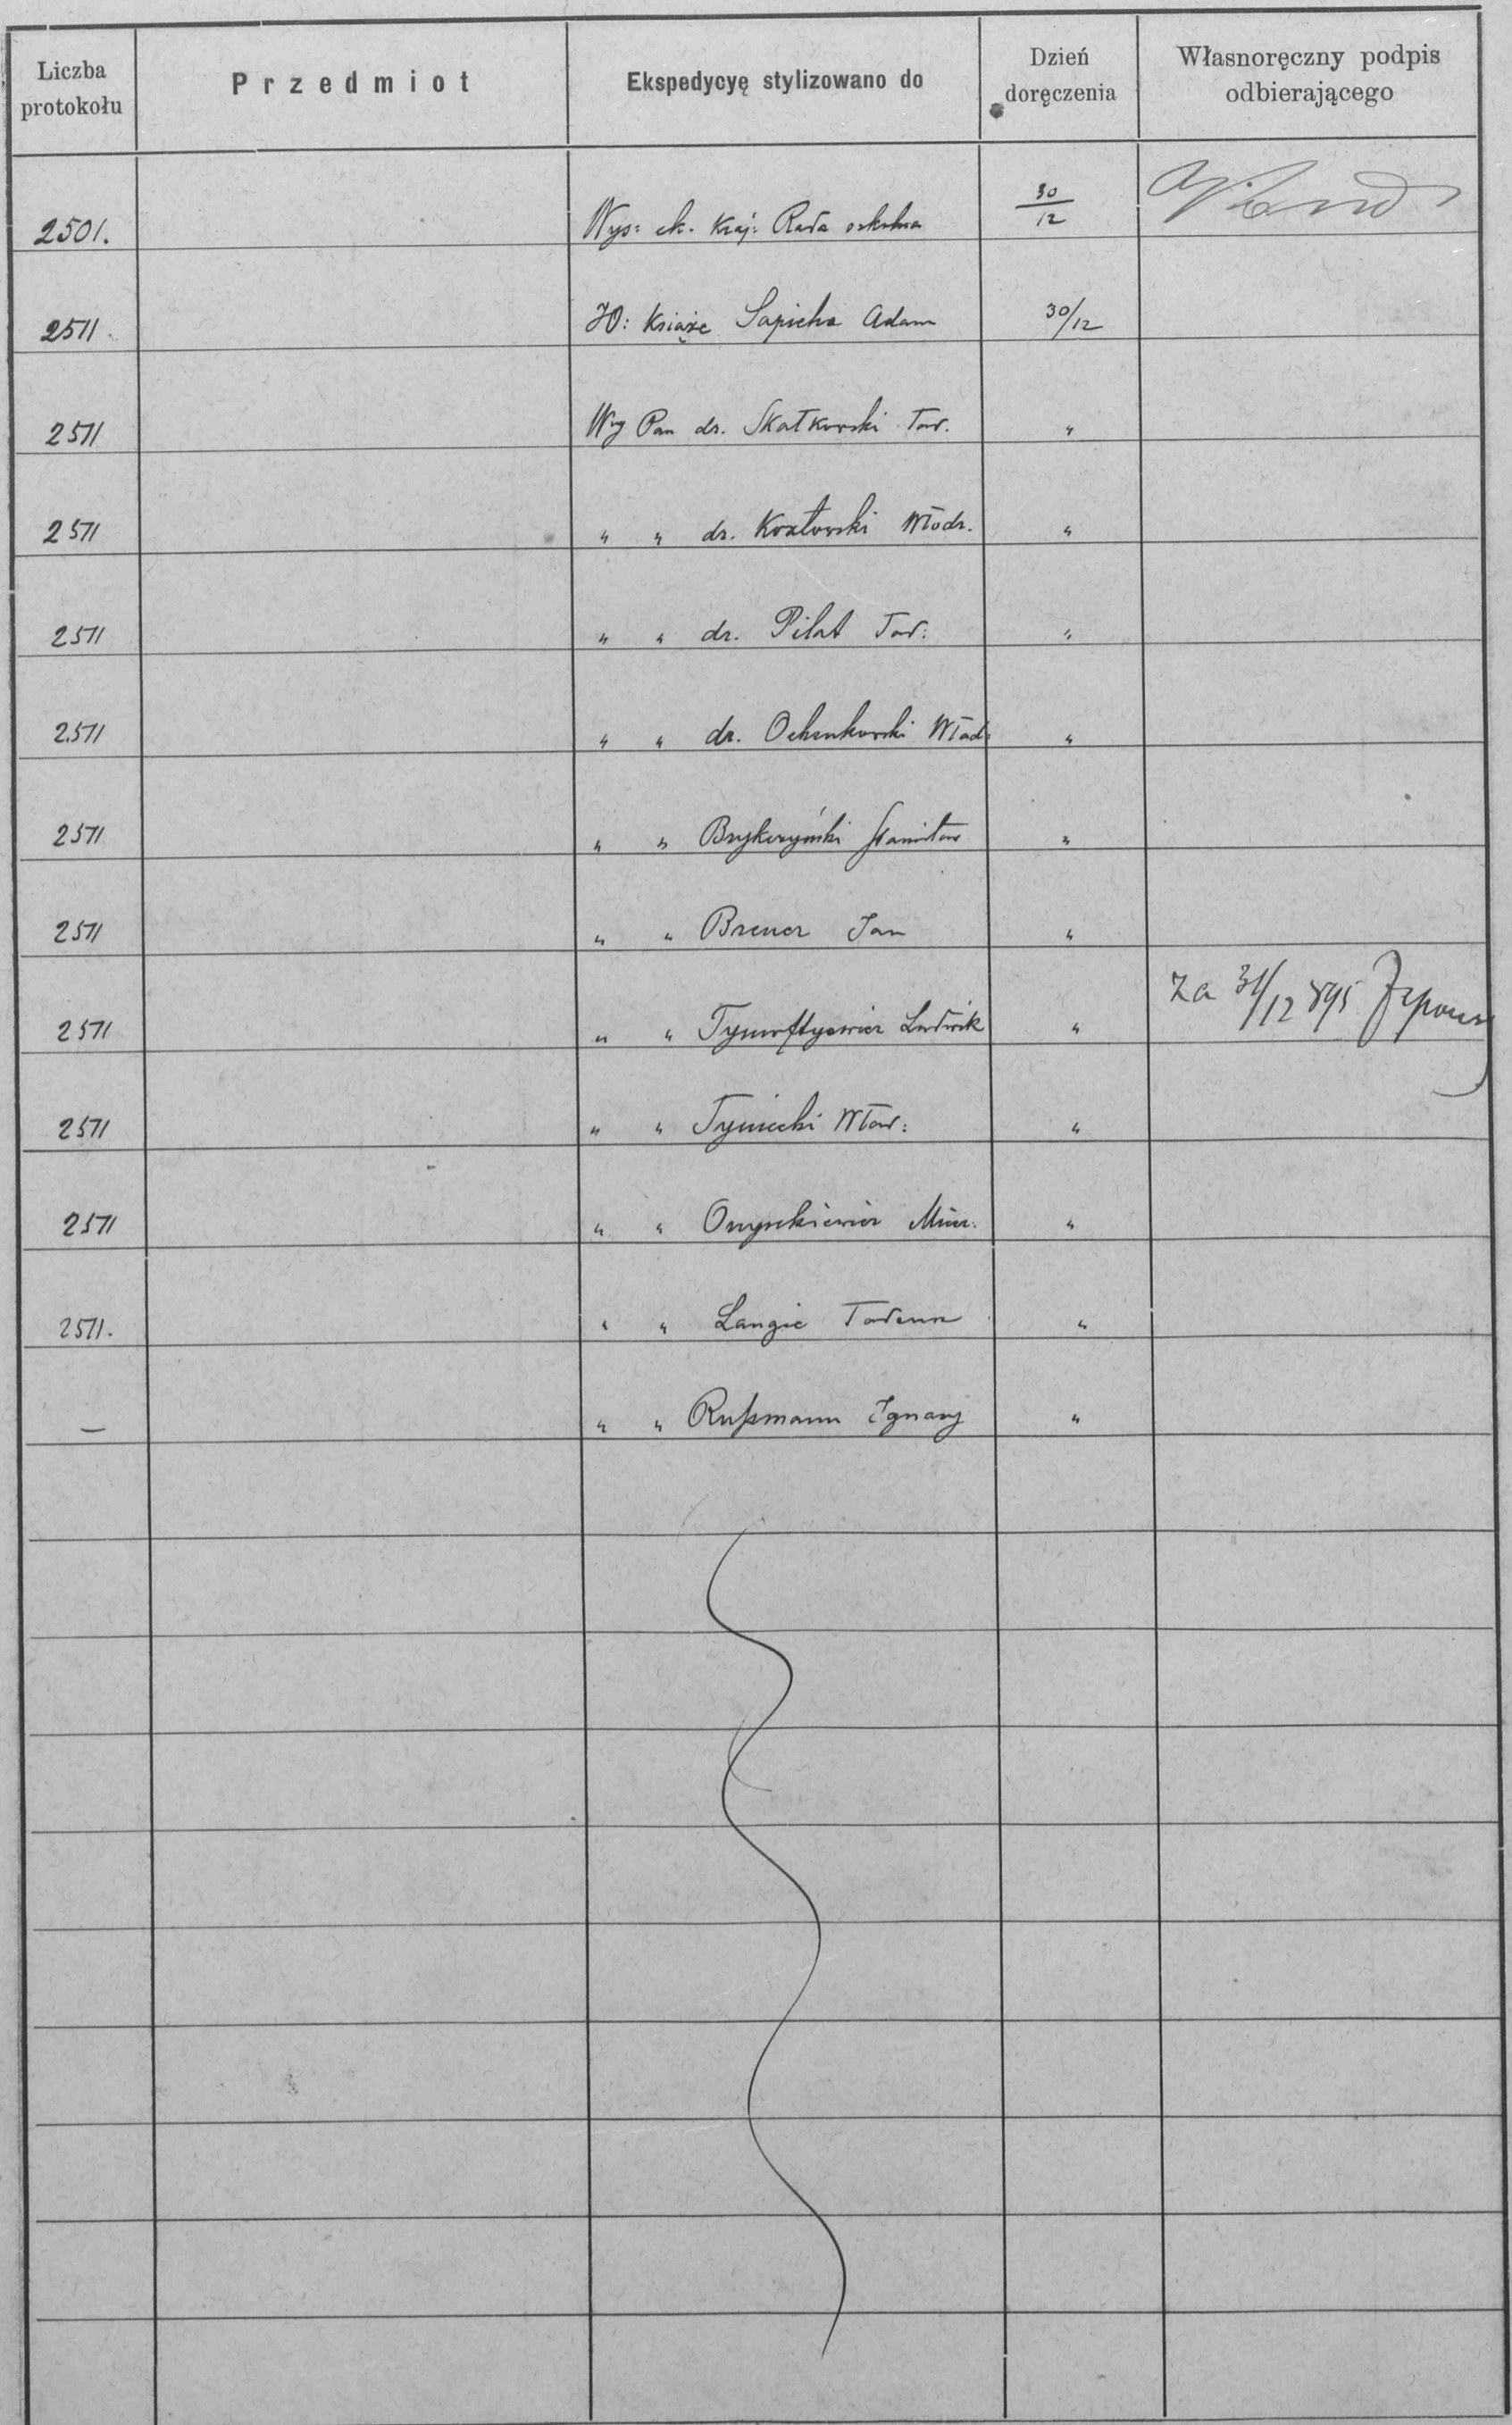 Liczba protokołu Przedmiot Ekspedycyę stylizowano do Dzień doręczenia Własnoręczny podpis odbierającego
2501. Wys: ck. Kraj: Rada szkolna 30/12
2511 JO: Książe Sapieha Adam 30/12
2511 Wny Pan dr. Skałkowski Tad. "
2511 " " dr. Kozłowski Włodz. "
2511 " " dr. Pilat Tad: "
2511 " " dr. Ochenkowski Wład: "
2511 " " Brykczyński Stanisław "
2511 " " Breuer Jan "
2511 " " Ludwik " Za 31/12 895
2511 " " Tyniecki Wład: "
2511 " " Onyszkiewicz "
2511. " " Langie Tadeusz "
— " " Rußmann Ignacy "